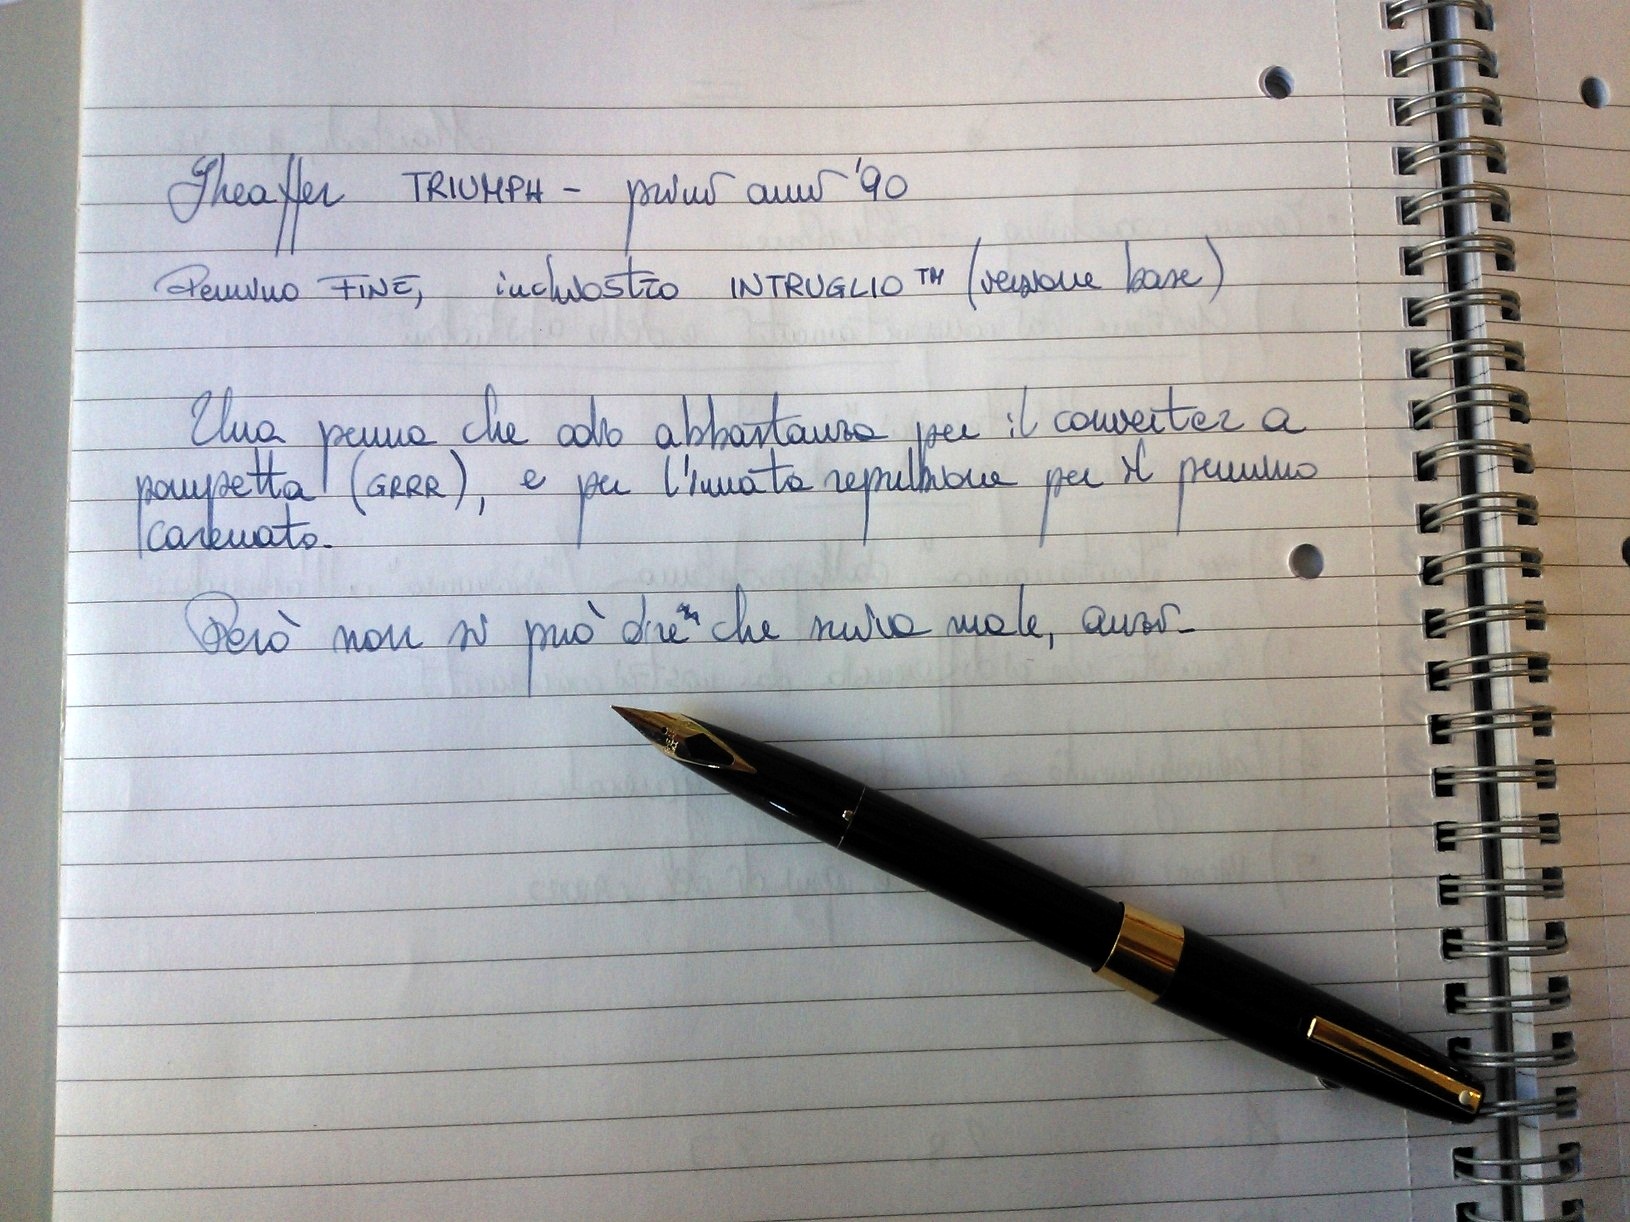 Sheaffer TRIUMPH - primi anni '90
Pennino FINE, inchiostro INTRUGLIO™ (versione base)
Una penna che odio abbastanza per il converter a
pompetta (GRRR), e per l'innata repulsione per il pennino
carenato.
Però non si può dire che scriva male, anzi.